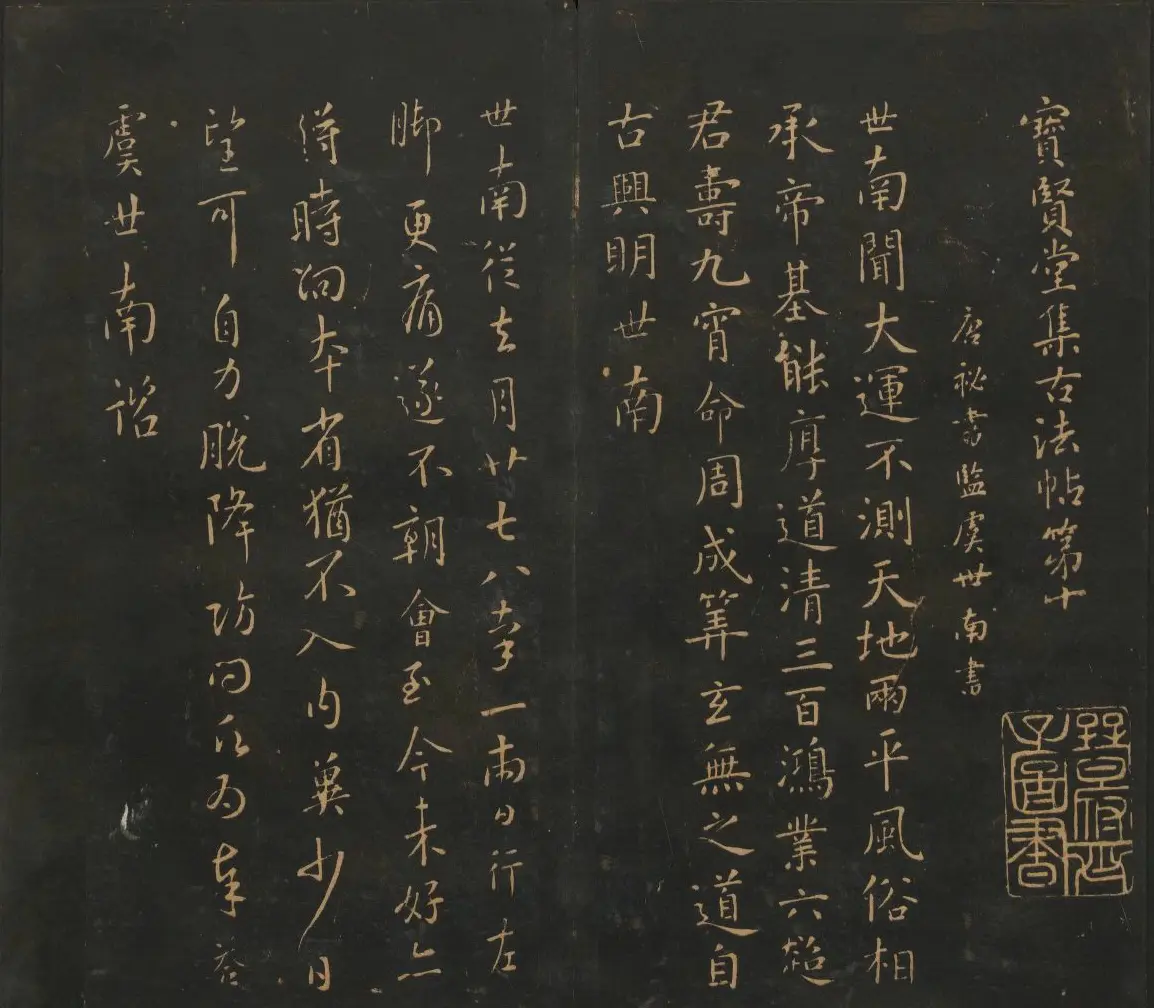 寶賢堂集古法帖第十
唐祕書監虞世南書
世南聞大運不測天地兩平風俗相
承帝基能厚道清三百鴻業六超
君壽九霄命周成筭玄無之道自
古興明世南
世南從去月廿七八率一兩日行左
脚更痛遂不朝會至今未好亦
得時向本省猶不入內冀少日
望可自力脫降訪問願為奉答
虞世南諮
子晉書